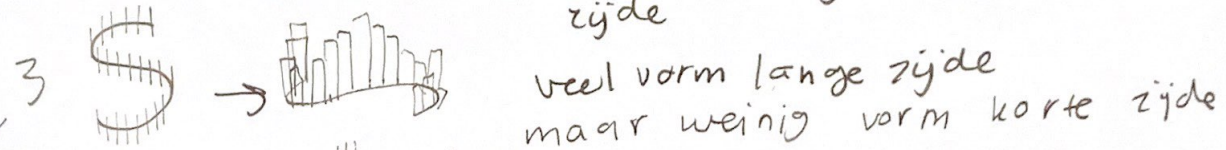 zijde
3 S
veel vorm lange zijde
maar weinig vorm korte zijde